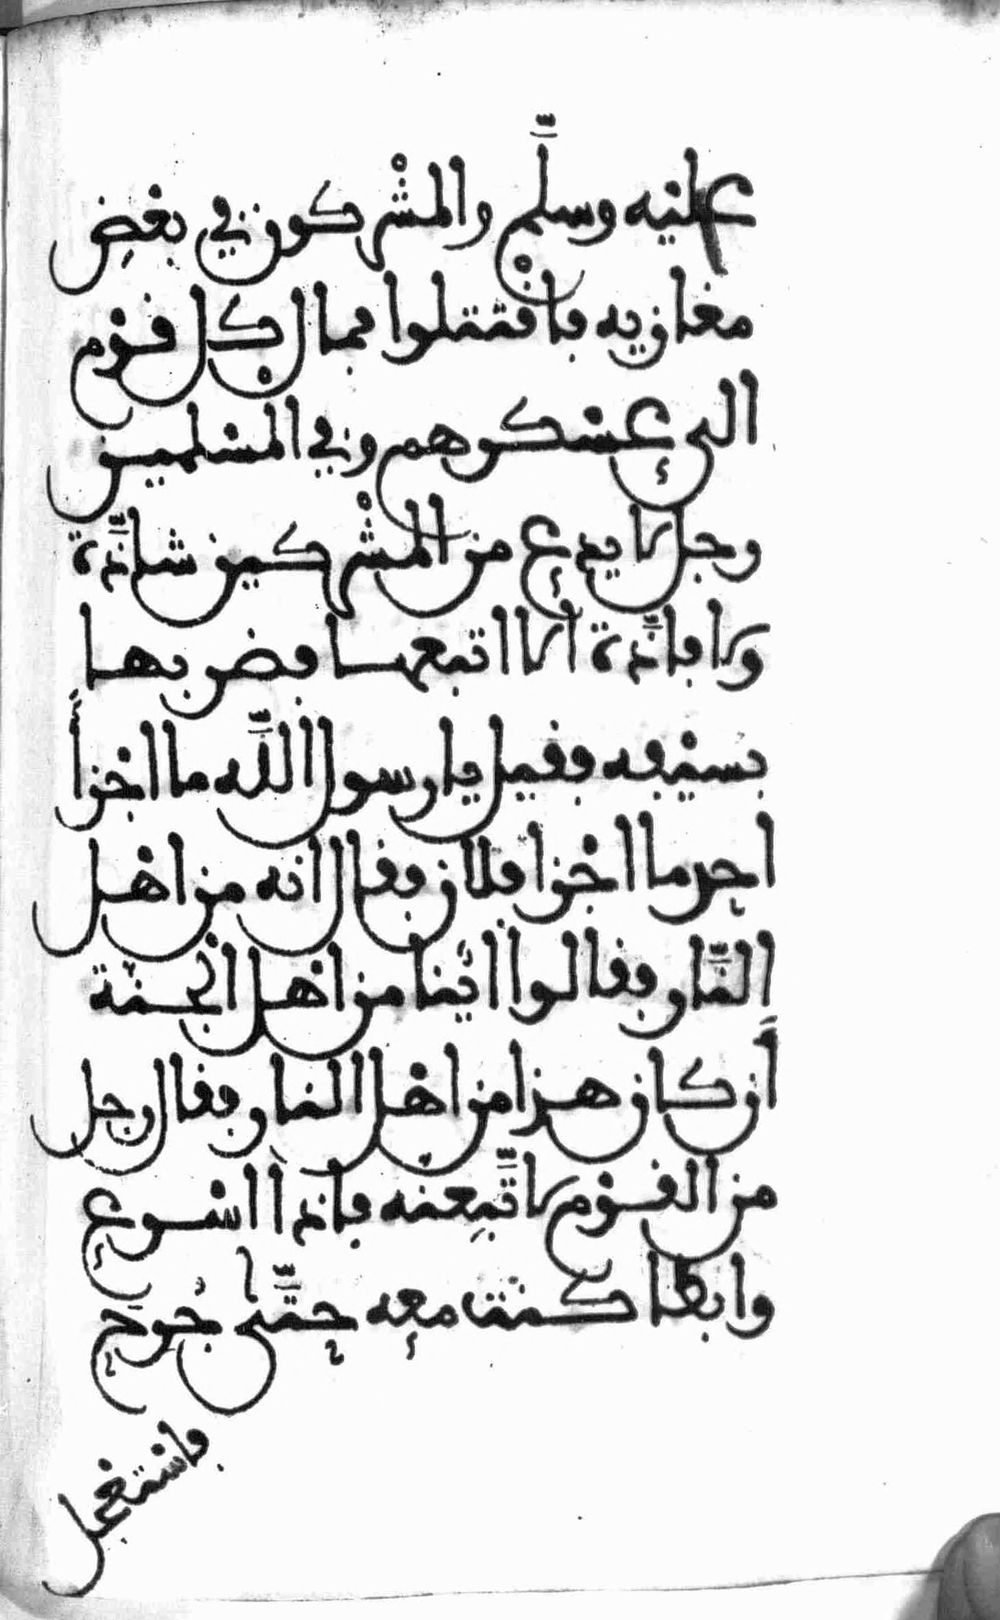 عليه وسلم والمشركون في بعض
مغازيه فاقتتلوا فمال كل قوم
الى عسكرهم وفي المسلمين
رجل لا يدع من المشركين شاذة
ولا فاذة الا اتبعها فضربها
بسيفه فقيل يا رسول الله ما اجزأ
احد ما اجزا فلان فقال انه من اهل
النار فقالوا اينا من اهل الجنة
ان كان هذا من اهل النار فقال رجل
من القوم لاتبعنه فاذا اسرع
وابطا كنت معه حتى جرح
فاستعجل